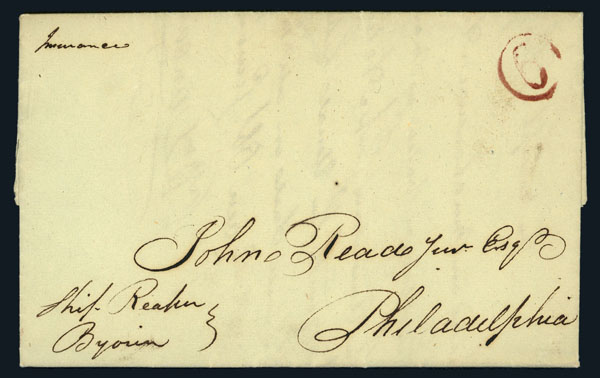 Insurance
6
John Read Junr. Esqr.
Philadelphia
Ship Reaper